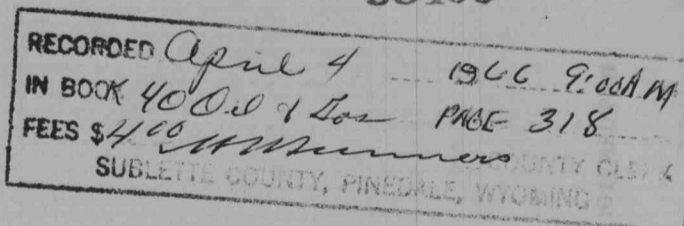 RECORDED April 4 1966 9:00AM
IN BOOK 40 Oil & Gas PAGE 318
FEES $4.00
COUNTY CLERK
SUBLETTE COUNTY, PINEDALE, WYOMING